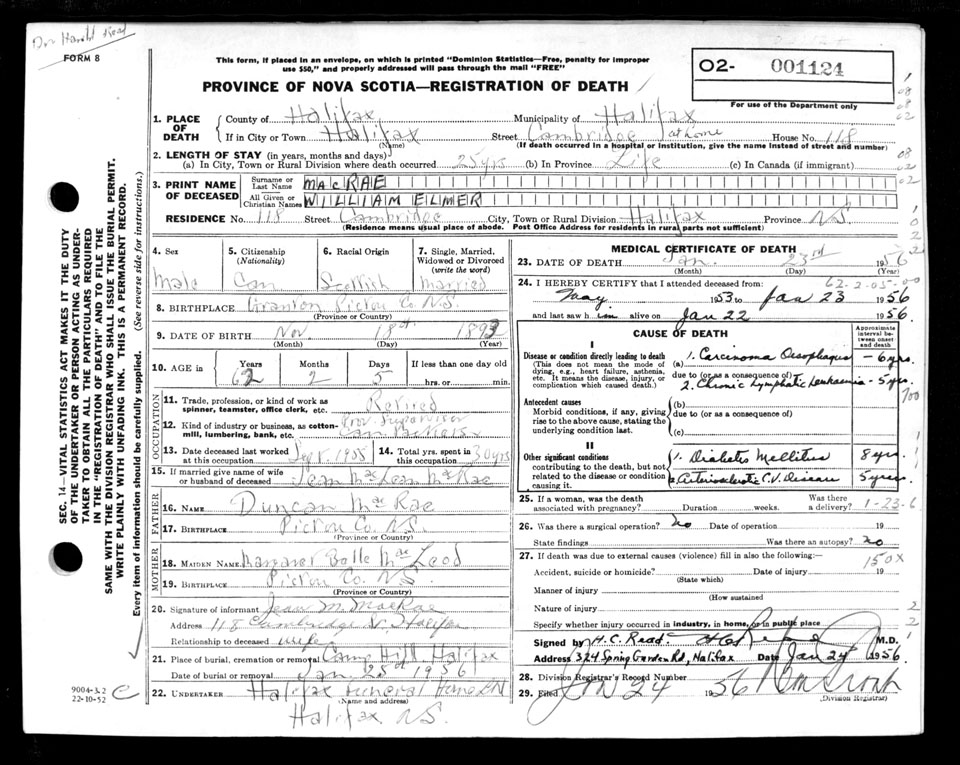 Dr. Harold Read
FORM 8
This form, if placed in an envelope, on which is printed "Dominion Statistics—Free, penalty for improper
use $50," and properly addressed will pass through the mail "FREE"
PROVINCE OF NOVA SCOTIA—REGISTRATION OF DEATH
O2- 001124
For use of the Department only
1. PLACE OF DEATH
County of Halifax Municipality of Halifax
If in City or Town Halifax Street Cambridge at home House No. 118
(Name) (If death occurred in a hospital or institution, give the name instead of street and number)
2. LENGTH OF STAY (in years, months and days)
(a) In City, Town or Rural Division where death occurred 25 yrs (b) In Province Life (c) In Canada (if immigrant)
3. PRINT NAME OF DECEASED
Surname or Last Name MacRAE
All Given or Christian Names WILLIAM ELMER
RESIDENCE No. 118 Street Cambridge City, Town or Rural Division Halifax Province N.S.
(Residence means usual place of abode. Post Office Address for residents in rural parts not sufficient)
4. Sex Male
5. Citizenship (Nationality) Can
6. Racial Origin Scottish
7. Single, Married, Widowed or Divorced (write the word) Married
8. BIRTHPLACE Granton Pictou Co. N.S.
(Province or Country)
9. DATE OF BIRTH Nov. 18th 1893
(Month) (Day) (Year)
10. AGE in Years 62 Months 2 Days 5 If less than one day old hrs. or min.
OCCUPATION
11. Trade, profession, or kind of work as spinner, teamster, office clerk, etc. Retired
12. Kind of industry or business, as cotton-mill, lumbering, bank, etc. Supervisor
13. Date deceased last worked at this occupation Sept. 1955
14. Total yrs. spent in this occupation 30 yrs
15. If married give name of wife or husband of deceased Jean MacLean MacRae
FATHER
16. Name Duncan MacRae
17. Birthplace Pictou Co. N.S.
(Province or Country)
MOTHER
18. MAIDEN NAME Margaret Belle MacLeod
19. BIRTHPLACE Pictou Co. N.S.
(Province or Country)
20. Signature of informant Jean M. MacRae
Address 118 Cambridge St. Halifax
Relationship to deceased wife
21. Place of burial, cremation or removal Camp Hill Halifax
Date of burial or removal Jan. 25th 1956
22. UNDERTAKER Halifax Funeral Home Ltd
(Name and address)
Halifax N.S.
MEDICAL CERTIFICATE OF DEATH
23. DATE OF DEATH Jan. 23rd 1956
(Month) (Day) (Year)
62-2-05-00
24. I HEREBY CERTIFY that I attended deceased from:
May 1953 to Jan 23 1956
and last saw him alive on Jan 22 1956.
CAUSE OF DEATH
Approximate interval between onset and death
I
Disease or condition directly leading to death
(This does not mean the mode of dying, e.g., heart failure, asthenia, etc. It means the disease, injury, or complication which caused death.)
(a) 1. Carcinoma Oesophagus — 6 yrs.
due to (or as a consequence of)
2. Chronic Lymphatic Leukaemia - 5 yrs.
Antecedent causes
Morbid conditions, if any, giving rise to the above cause, stating the underlying condition last.
(b)
due to (or as a consequence of)
(c)
II
Other significant conditions
contributing to the death, but not related to the disease or condition causing it.
1. Diabetes Mellitus 8 yrs.
2. Arteriosclerotic C.V. Disease 5 yrs.
25. If a woman, was the death associated with pregnancy? Duration weeks. Was there a delivery?
1-23-6
26. Was there a surgical operation? no Date of operation 19
State findings Was there an autopsy? no
27. If death was due to external causes (violence) fill in also the following:—
150X
Accident, suicide or homicide? Date of injury 19
(State which)
Manner of injury
(How sustained
Nature of injury
Specify whether injury occurred in industry, in home, or in public place
Signed by H.C. Read M.D.
Address 324 Spring Garden Rd, Halifax Date Jan 24 1956
28. Division Registrar's Record Number
29. Filed JAN 24 1956
(Division Registrar)
SEC. 14—VITAL STATISTICS ACT MAKES IT THE DUTY
OF THE UNDERTAKER OR PERSON ACTING AS UNDER-
TAKER TO OBTAIN ALL THE PARTICULARS REQUIRED
IN THE "REGISTRATION OF DEATH" AND TO FILE THE
SAME WITH THE DIVISION REGISTRAR WHO SHALL ISSUE THE BURIAL PERMIT.
WRITE PLAINLY WITH UNFADING INK. THIS IS A PERMANENT RECORD.
Every item of information should be carefully supplied. (See reverse side for instructions.)
9004-3.2
22-10-52